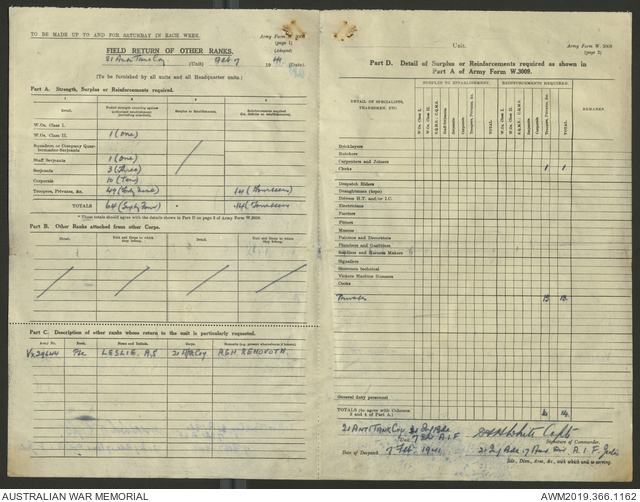 TO BE MADE UP TO AND FOR SATURDAY IN EACH WEEK.
Army Form W. 3009
(page 1)
(Adapted)
FIELD RETURN OF OTHER RANKS.
21 Anti Tank Coy (Unit) Feb 7 1941 (Date)
(To be furnished by all units and all Headquarter units.)
Part A. Strength, Surplus or Reinforcements required.
1 2 3 4
Posted strength counting against authorized establishment (including attached).
Surplus to Establishment.
Reinforcements required
W.Os. Class I.
W.Os. Class II. 1 (One)
Squadron or Company Quar-
termaster-Serjeants
Staff Serjeants 1 (One)
Serjeants 3 (Three)
Corporals 10 (Ten)
Troopers, Privates, &c. 49 14 (Fourteen)
TOTALS 64 (Sixty Four) 14 (Fourteen)
* These totals should agree with the details shewn in Part D on page 2 of Army Form W.3009.
Part B. Other Ranks attached from other Corps.
Detail. Unit and Corps to which they belong. Detail. Unit and Corps to which they belong.
Part C. Description of other ranks whose return to the unit is particularly requested.
Army No. Rank. Name and Initials. Corps. Remarks (e.g. present whereabouts if known).
Vx29644 Pte LESLIE. A.S 21 A/Tk Coy AGH REHOVOTH.
Unit.
Army Form W. 3009
(page 2)
Part D. Detail of Surplus or Reinforcements required as shewn in
Part A of Army Form W.3009.
SURPLUS TO ESTABLISHMENT. REINFORCEMENTS REQUIRED.
DETAIL OF SPECIALISTS,
TRADESMEN, ETC.
W.Os. Class I.
W.Os. Class II.
Staff-Serjeants
Serjeants
Corporals
Troopers, Privates, &c.
TOTAL
W.Os. Class I.
W.Os. Class II.
Staff-Serjeants
Serjeants
Corporals
Troopers, Privates, &c.
TOTAL
REMARKS.
Bricklayers
Butchers
Carpenters and Joiners
Clerks 1 1
Despatch Riders
Draughtsmen (topo)
Drivers H.T. and/or I.C.
Electricians
Farriers
Fitters
Masons
Painters and Decorators
Plumbers and Gasfitters
Saddlers and Harness Makers
Signallers
Storemen technical
Vickers Machine Gunners
Cooks
Privates 13 13
General duty personnel
TOTALS (to agree with Columns
3 and 4 of Part A.) 14
21 Anti Tank Coy 21 Inf Bde
7 Div A.I.F. Signature of Commander.
Date of Despatch 7 Feb. 1941 21 Inf Bde 7 Aust Div. A.I.F.
Bde., Divn., Area, &c., with which unit is serving.
AUSTRALIAN WAR MEMORIAL
AWM2019.366.1162